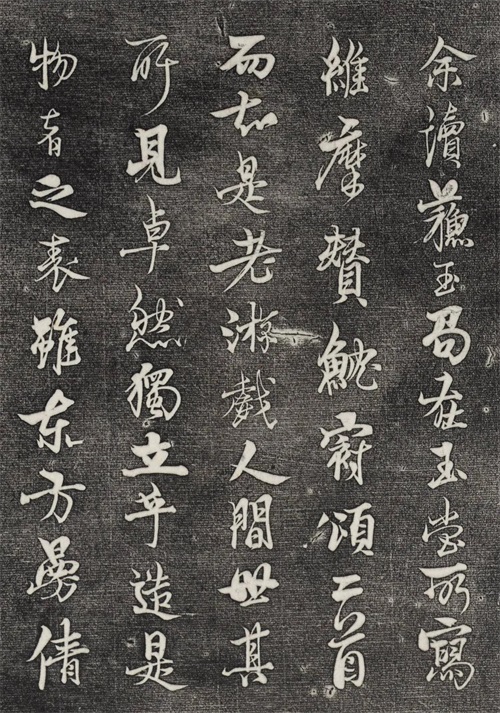 余讀蘇玉局在玉堂所寫
維摩贊魫冠頌二首
而知是老游戲人間世其
所見卓然獨立乎造是
物者之表雖東方曼倩